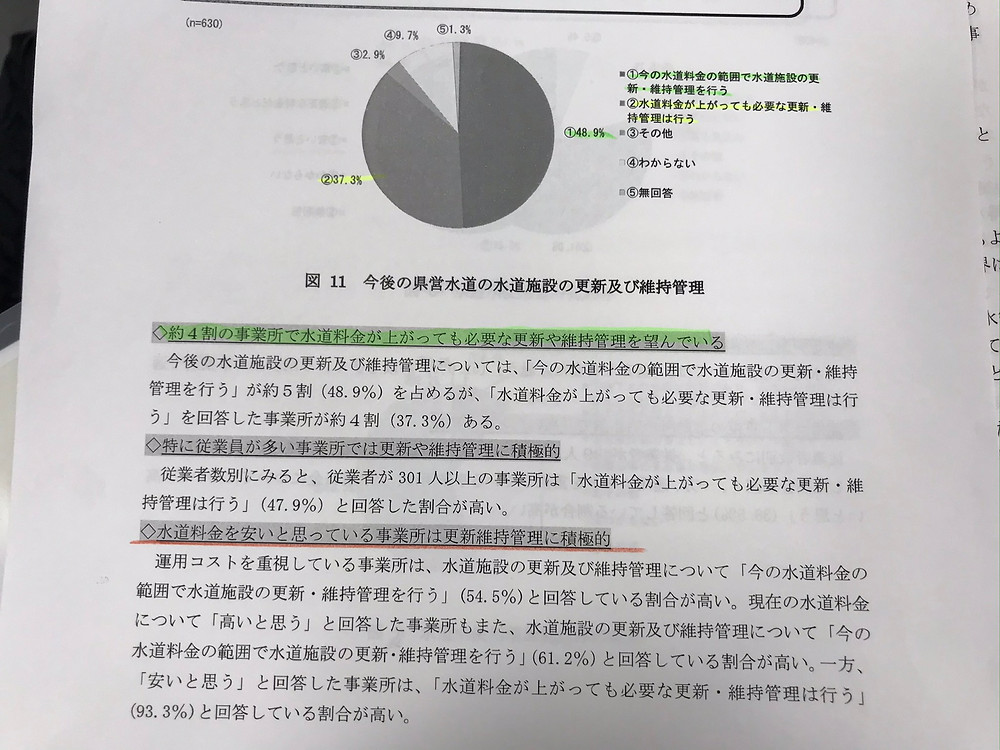 (n=630)
④9.7%
⑤1.3%
③2.9%
①48.9%
②37.3%
①今の水道料金の範囲で水道施設の更
新・維持管理を行う
②水道料金が上がっても必要な更新・維
持管理は行う
③その他
④わからない
⑤無回答
図 11 今後の県営水道の水道施設の更新及び維持管理
◇約４割の事業所で水道料金が上がっても必要な更新や維持管理を望んでいる
今後の水道施設の更新及び維持管理については、「今の水道料金の範囲で水道施設の更新・維持
管理を行う」が約５割（48.9%）を占めるが、「水道料金が上がっても必要な更新・維持管理は行
う」を回答した事業所が約４割（37.3%）ある。
◇特に従業員が多い事業所では更新や維持管理に積極的
従業者数別にみると、従業者が 301 人以上の事業所は「水道料金が上がっても必要な更新・維
持管理は行う」（47.9%）と回答した割合が高い。
◇水道料金を安いと思っている事業所は更新維持管理に積極的
運用コストを重視している事業所は、水道施設の更新及び維持管理について「今の水道料金の
範囲で水道施設の更新・維持管理を行う」（54.5%）と回答している割合が高い。現在の水道料金
について「高いと思う」と回答した事業所もまた、水道施設の更新及び維持管理について「今の
水道料金の範囲で水道施設の更新・維持管理を行う」（61.2%）と回答している割合が高い。一方、
「安いと思う」と回答した事業所は、「水道料金が上がっても必要な更新・維持管理は行う」
（93.3%）と回答している割合が高い。